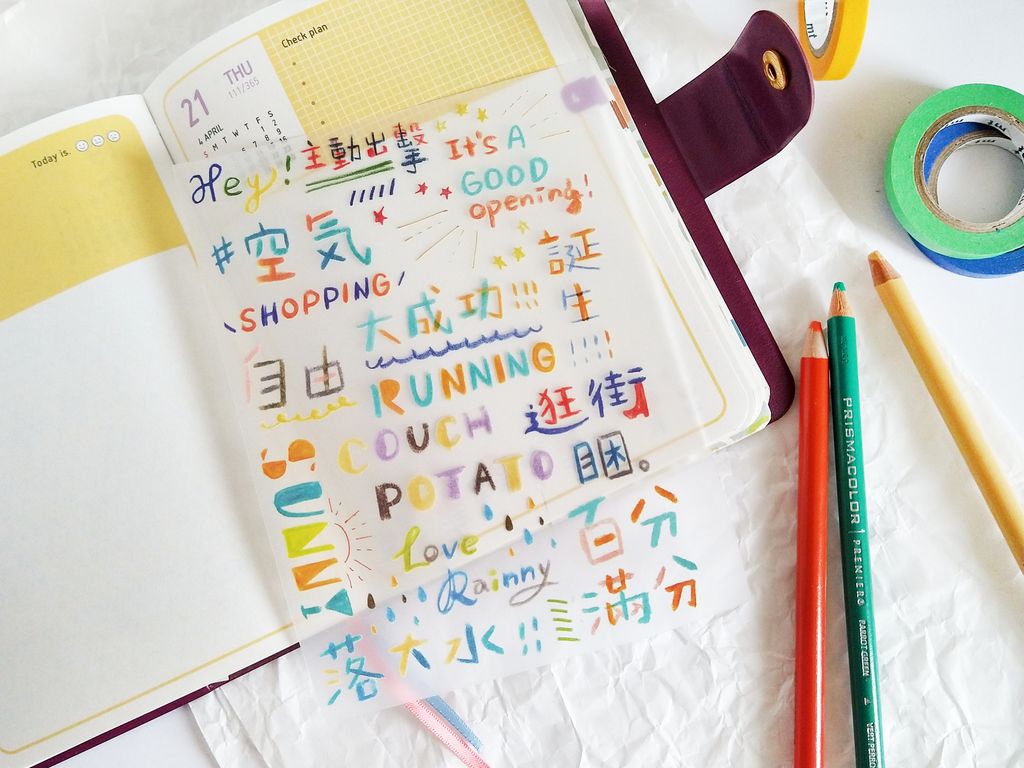 Check plan
21 THU
111/365
4 APRIL
S M T W T F S
1 2
Today is.
Hey! 主動出擊
It's A
GOOD
opening!
#空気
SHOPPING
誕生
大成功!!!
自由
RUNNING!!!!
SUNNY
COUCH
逛街
POTATO
睏。
Love
百分
Rainny
滿分
落大水!!
mt
mt
PRISMACOLOR PREMIER®
PARROT GREEN
VERT PERRO